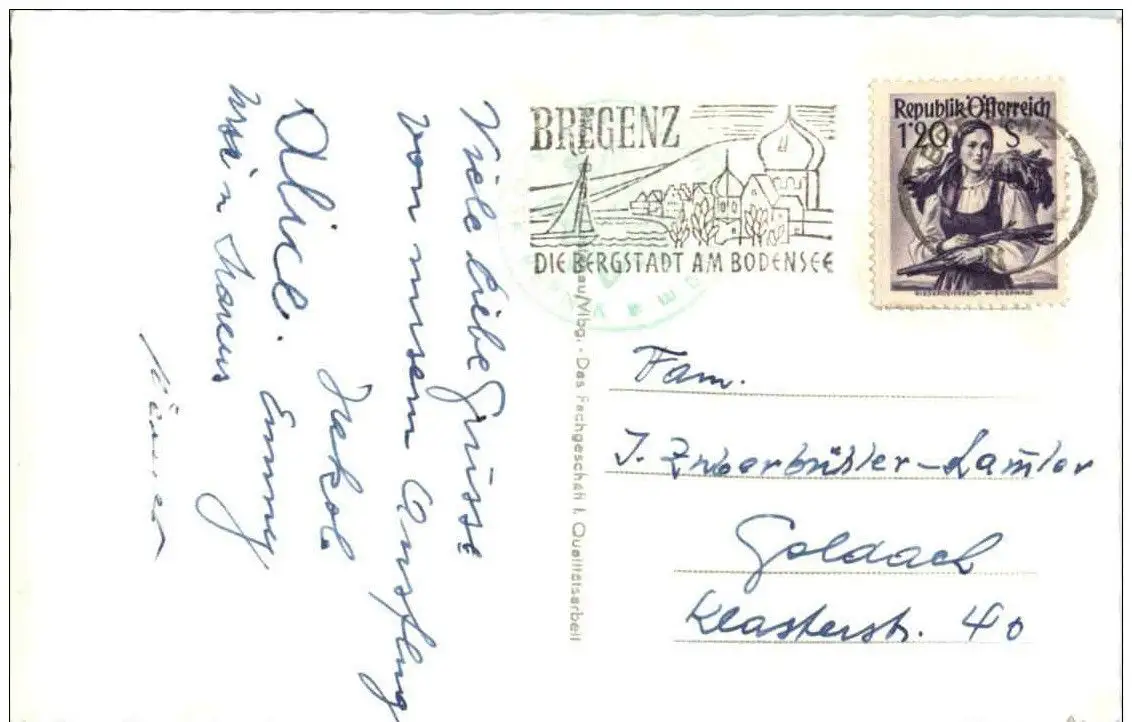 BREGENZ
DIE BERGSTADT AM BODENSEE
Republik Österreich
1'20 S
NIEDERÖSTERREICH WIENERWALD
Viele liebe Grüsse
von unserm Ausflug
Alice. Jakob
Emmy
au/Vlbg. · Das Fachgeschäft f. Qualitätsarbeit
Fam.
J. Zuberbühler-
Goldach
Klosterstr. 40